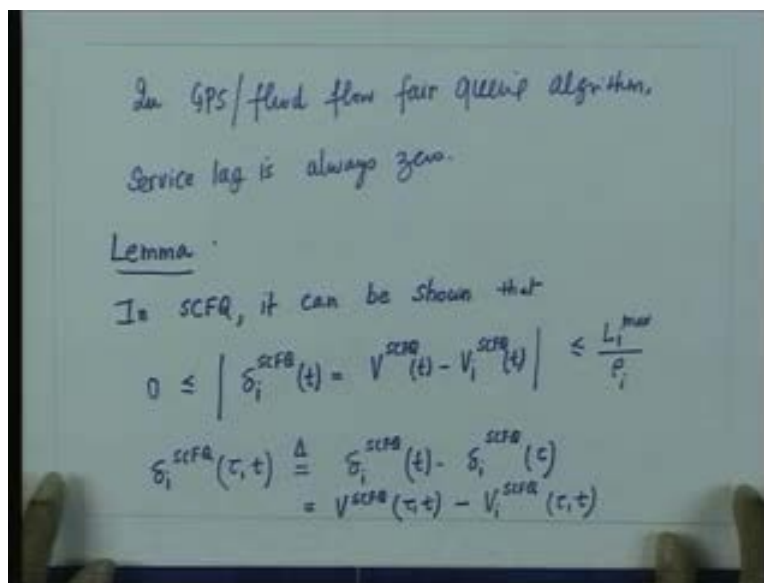 In GPS/fluid flow fair queuing algorithm,
Service lag is always zero.
Lemma
In SCFQ, it can be shown that
0 ≤ | δ_i^SCFQ(t) = V^SCFQ(t) - V_i^SCFQ(t) | ≤ L_i^max / ρ_i
δ_i^SCFQ(τ,t) ≜ δ_i^SCFQ(t) - δ_i^SCFQ(τ)
= V^SCFQ(τ,t) - V_i^SCFQ(τ,t)